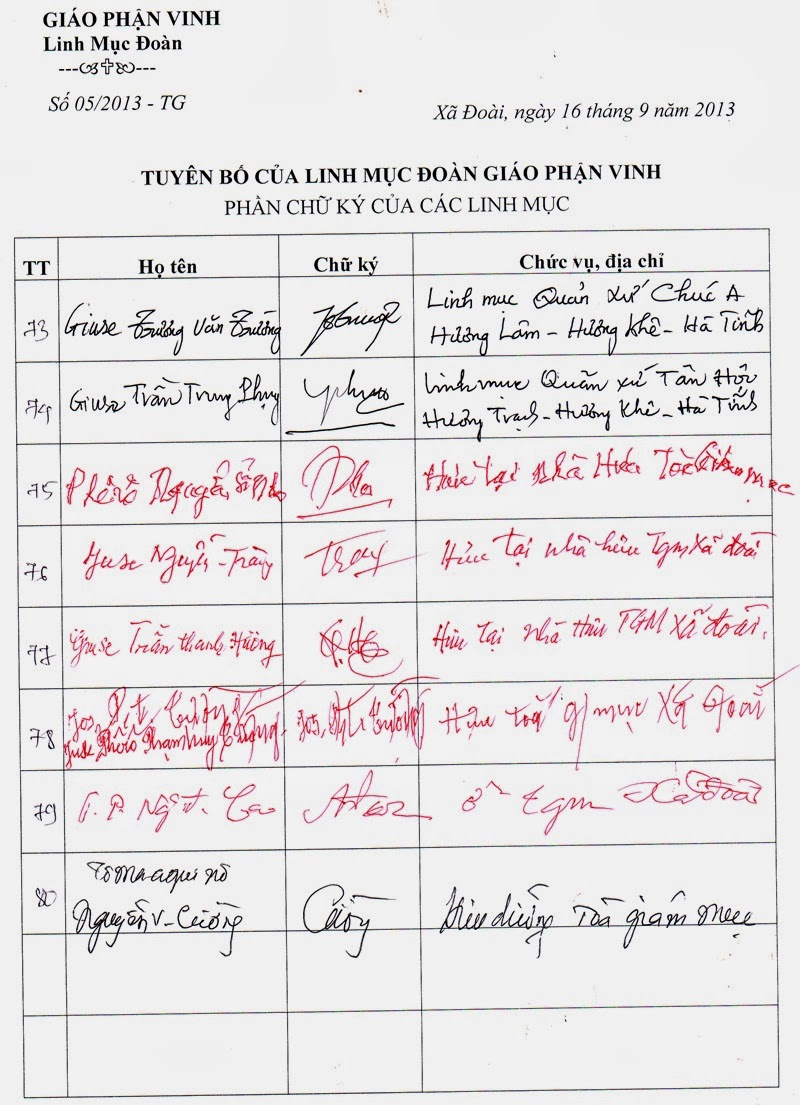 GIÁO PHẬN VINH
Linh Mục Đoàn
Số 05/2013 - TG
Xã Đoài, ngày 16 tháng 9 năm 2013
TUYÊN BỐ CỦA LINH MỤC ĐOÀN GIÁO PHẬN VINH
PHẦN CHỮ KÝ CỦA CÁC LINH MỤC
TT Họ tên Chữ ký Chức vụ, địa chỉ
73 Giuse Trương Văn Trường Linh mục Quản xứ Chúc A
Hương Lâm - Hương Khê - Hà Tĩnh
74 Giuse Trần Trung Phụng Linh mục Quản xứ Tân Hội
Hương Trạch - Hương Khê - Hà Tĩnh
75 Phêrô Nguyễn Hưu tại nhà Hưu Toà
76 Juse Nguyễn-Trọng Hưu tại nhà hưu Tgm Xã đoài
77 Giuse Trần thanh Hương Hưu tại nhà Hưu TGM Xã đoài.
78 Hưu toà gi mục Xã Đoài
79 ở tgm Xã đoài
80 Tômaaquinô
Nguyễn V-Cường Hưu dưỡng Toà giám mục